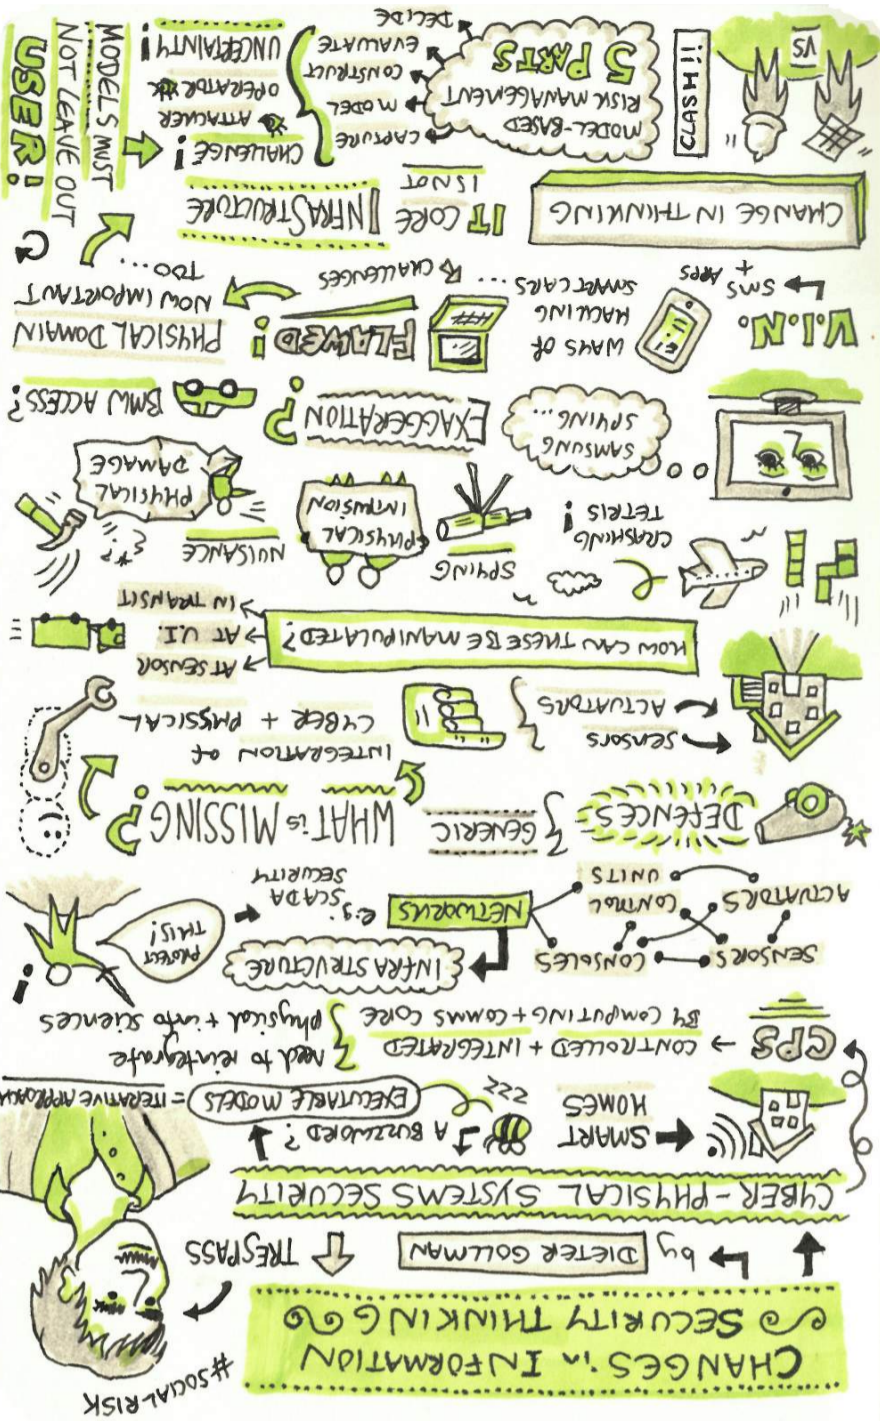 CHANGES in INFORMATION
SECURITY THINKING
#SOCIALRISK
by DIETER GOLLMAN
TRESPASS
CYBER-PHYSICAL SYSTEMS SECURITY
SMART
HOMES
ZZZ
A BUZZWORD?
EXECUTABLE MODELS = ITERATIVE APPROACH
CPS → CONTROLLED + INTEGRATED
BY COMPUTING + COMMS CORE
need to reintegrate
physical + info sciences
SENSORS
CONSOLES
ACTUATORS
CONTROL
UNITS
INFRASTRUCTURE
NETWORKS
e.g. SCADA
SECURITY
PROTECT
THIS!
!
DEFENCES
GENERIC
WHAT is MISSING?
SENSORS
ACTUATORS
INTEGRATION of
CYBER + PHYSICAL
HOW CAN THESE BE MANIPULATED?
AT SENSOR
AT U.I.
IN TRANSIT
CRASHING
TETRIS!
SPYING
PHYSICAL
INTRUSION
NUISANCE
PHYSICAL
DAMAGE
SAMSUNG
SPYING
...
EXAGGERATION?
BMW ACCESS?
V.I.N.
SMS + APPS
WAYS OF
HACKING
SMARTCARS
... & CHALLENGES
FLAWED!
PHYSICAL DOMAIN
NOW IMPORTANT
TOO...
CHANGE IN THINKING
IT CORE INFRASTRUCTURE
IS NOT
VS
CLASH!!
MODEL-BASED
RISK MANAGEMENT
5 PARTS
CAPTURE
MODEL
CONSTRUCT
EVALUATE
DECIDE
CHALLENGE!
ATTACKER
OPERATOR
UNCERTAINTY!
MODELS MUST
NOT LEAVE OUT
USER!